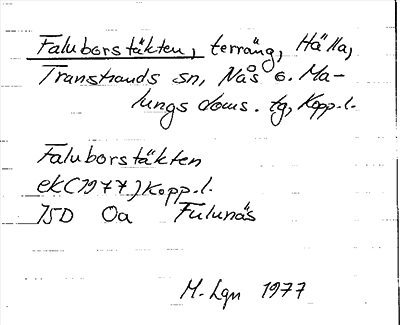 Faluborstäkten, terräng, Hälla,
Transtrands sn, Nås o. Ma-
lungs doms. tg, Kopp. l.
Faluborstäkten
ek (1977) Kopp. l.
15D Oa Fulunäs
M. Lgn 1977